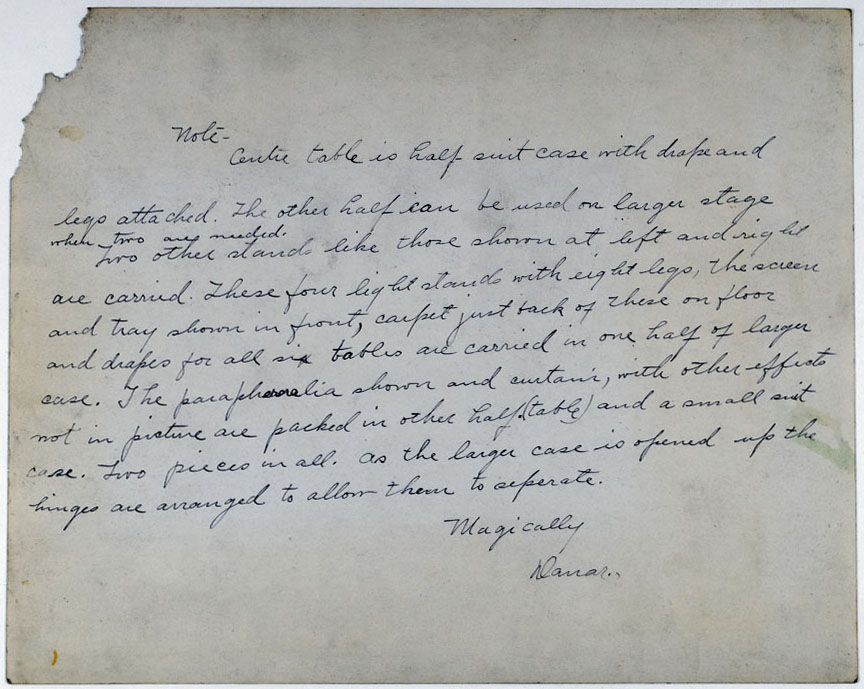 Note-
Centre table is half suit case with drape and
legs attached. The other half can be used on larger stage
when two are needed.
Two other stands like those shown at left and right
are carried. These four light stands with eight legs, the screen
and tray shown in front, carpet just back of these on floor
and drapes for all six tables are carried in one half of larger
case. The paraphernalia shown and curtain, with other effects
not in picture are packed in other half (table) and a small suit
case. Two pieces in all. As the larger case is opened up the
hinges are arranged to allow them to seperate.
Magically